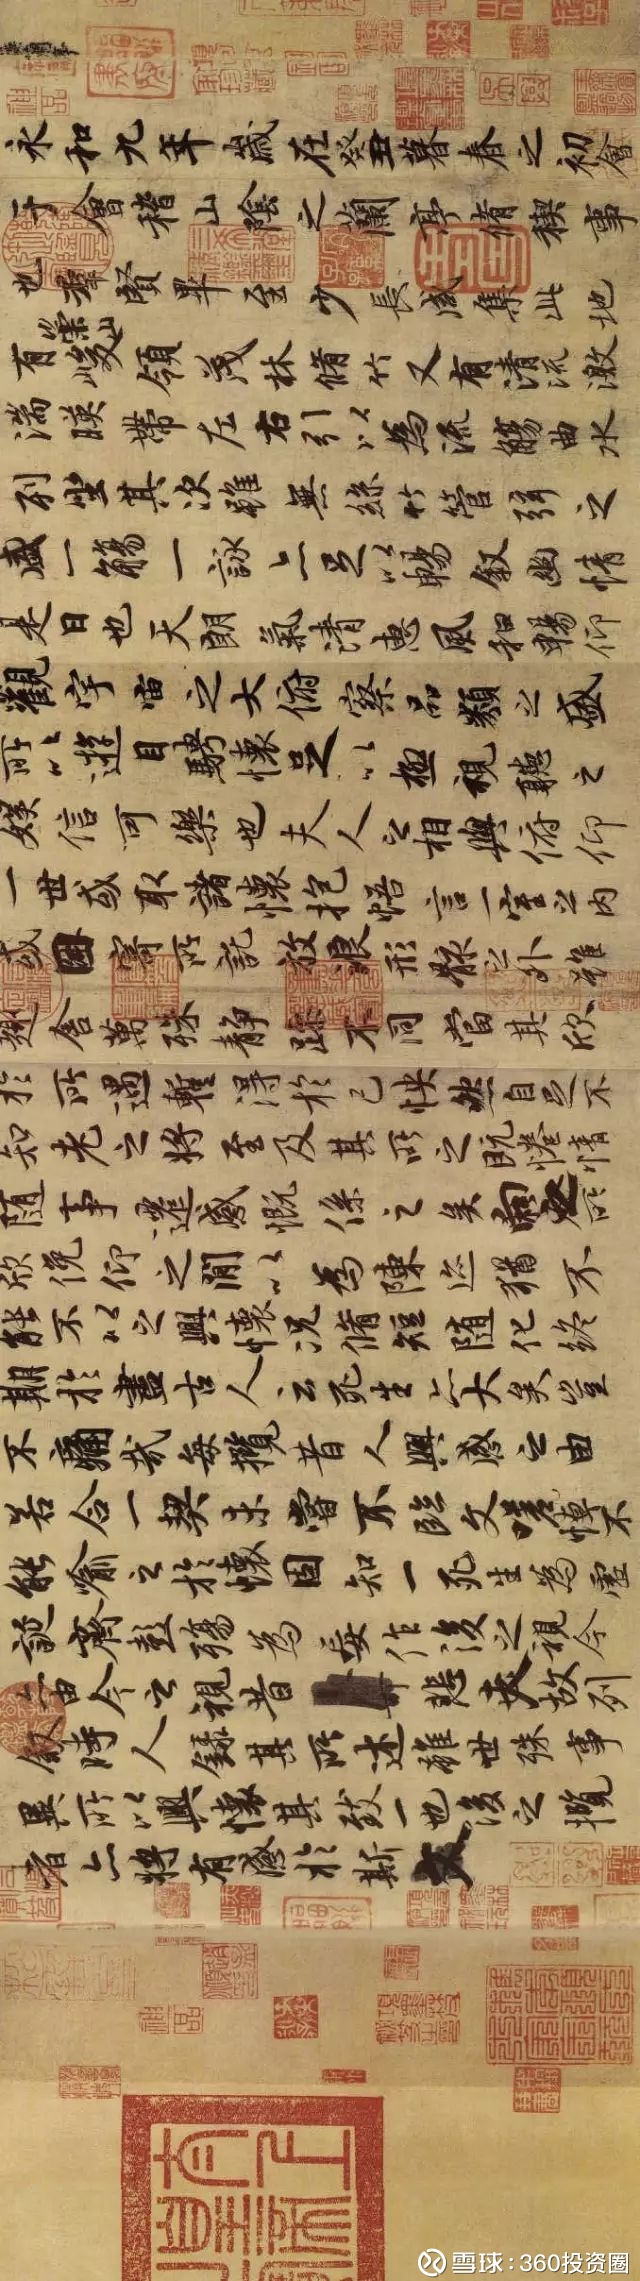 永和九年歲在癸丑暮春之初會
于會稽山陰之蘭亭脩稧事
也羣賢畢至少長咸集此地
有崇山峻領茂林脩竹又有清流激
湍暎帶左右引以為流觴曲水
列坐其次雖無絲竹管弦之
盛一觴一詠亦足以暢敘幽情
是日也天朗氣清惠風和暢仰
觀宇宙之大俯察品類之盛
所以遊目騁懷足以極視聽之
娛信可樂也夫人之相與俯仰
一世或取諸懷抱悟言一室之內
或因寄所託放浪形骸之外雖
趣舍萬殊靜躁不同當其欣
於所遇暫得於己怏然自足不
知老之將至及其所之既惓情
隨事遷感慨係之矣向之所
欣俛仰之閒以為陳跡猶不
能不以之興懷況脩短隨化終
期於盡古人云死生亦大矣豈
不痛哉每攬昔人興感之由
若合一契未嘗不臨文嗟悼不
能喻之於懷固知一死生為虛
誕齊彭殤為妄作後之視今
亦由今之視昔悲夫故列
敘時人錄其所述雖世殊事
異所以興懷其致一也後之攬
者亦將有感於斯文
雪球：360投资圈